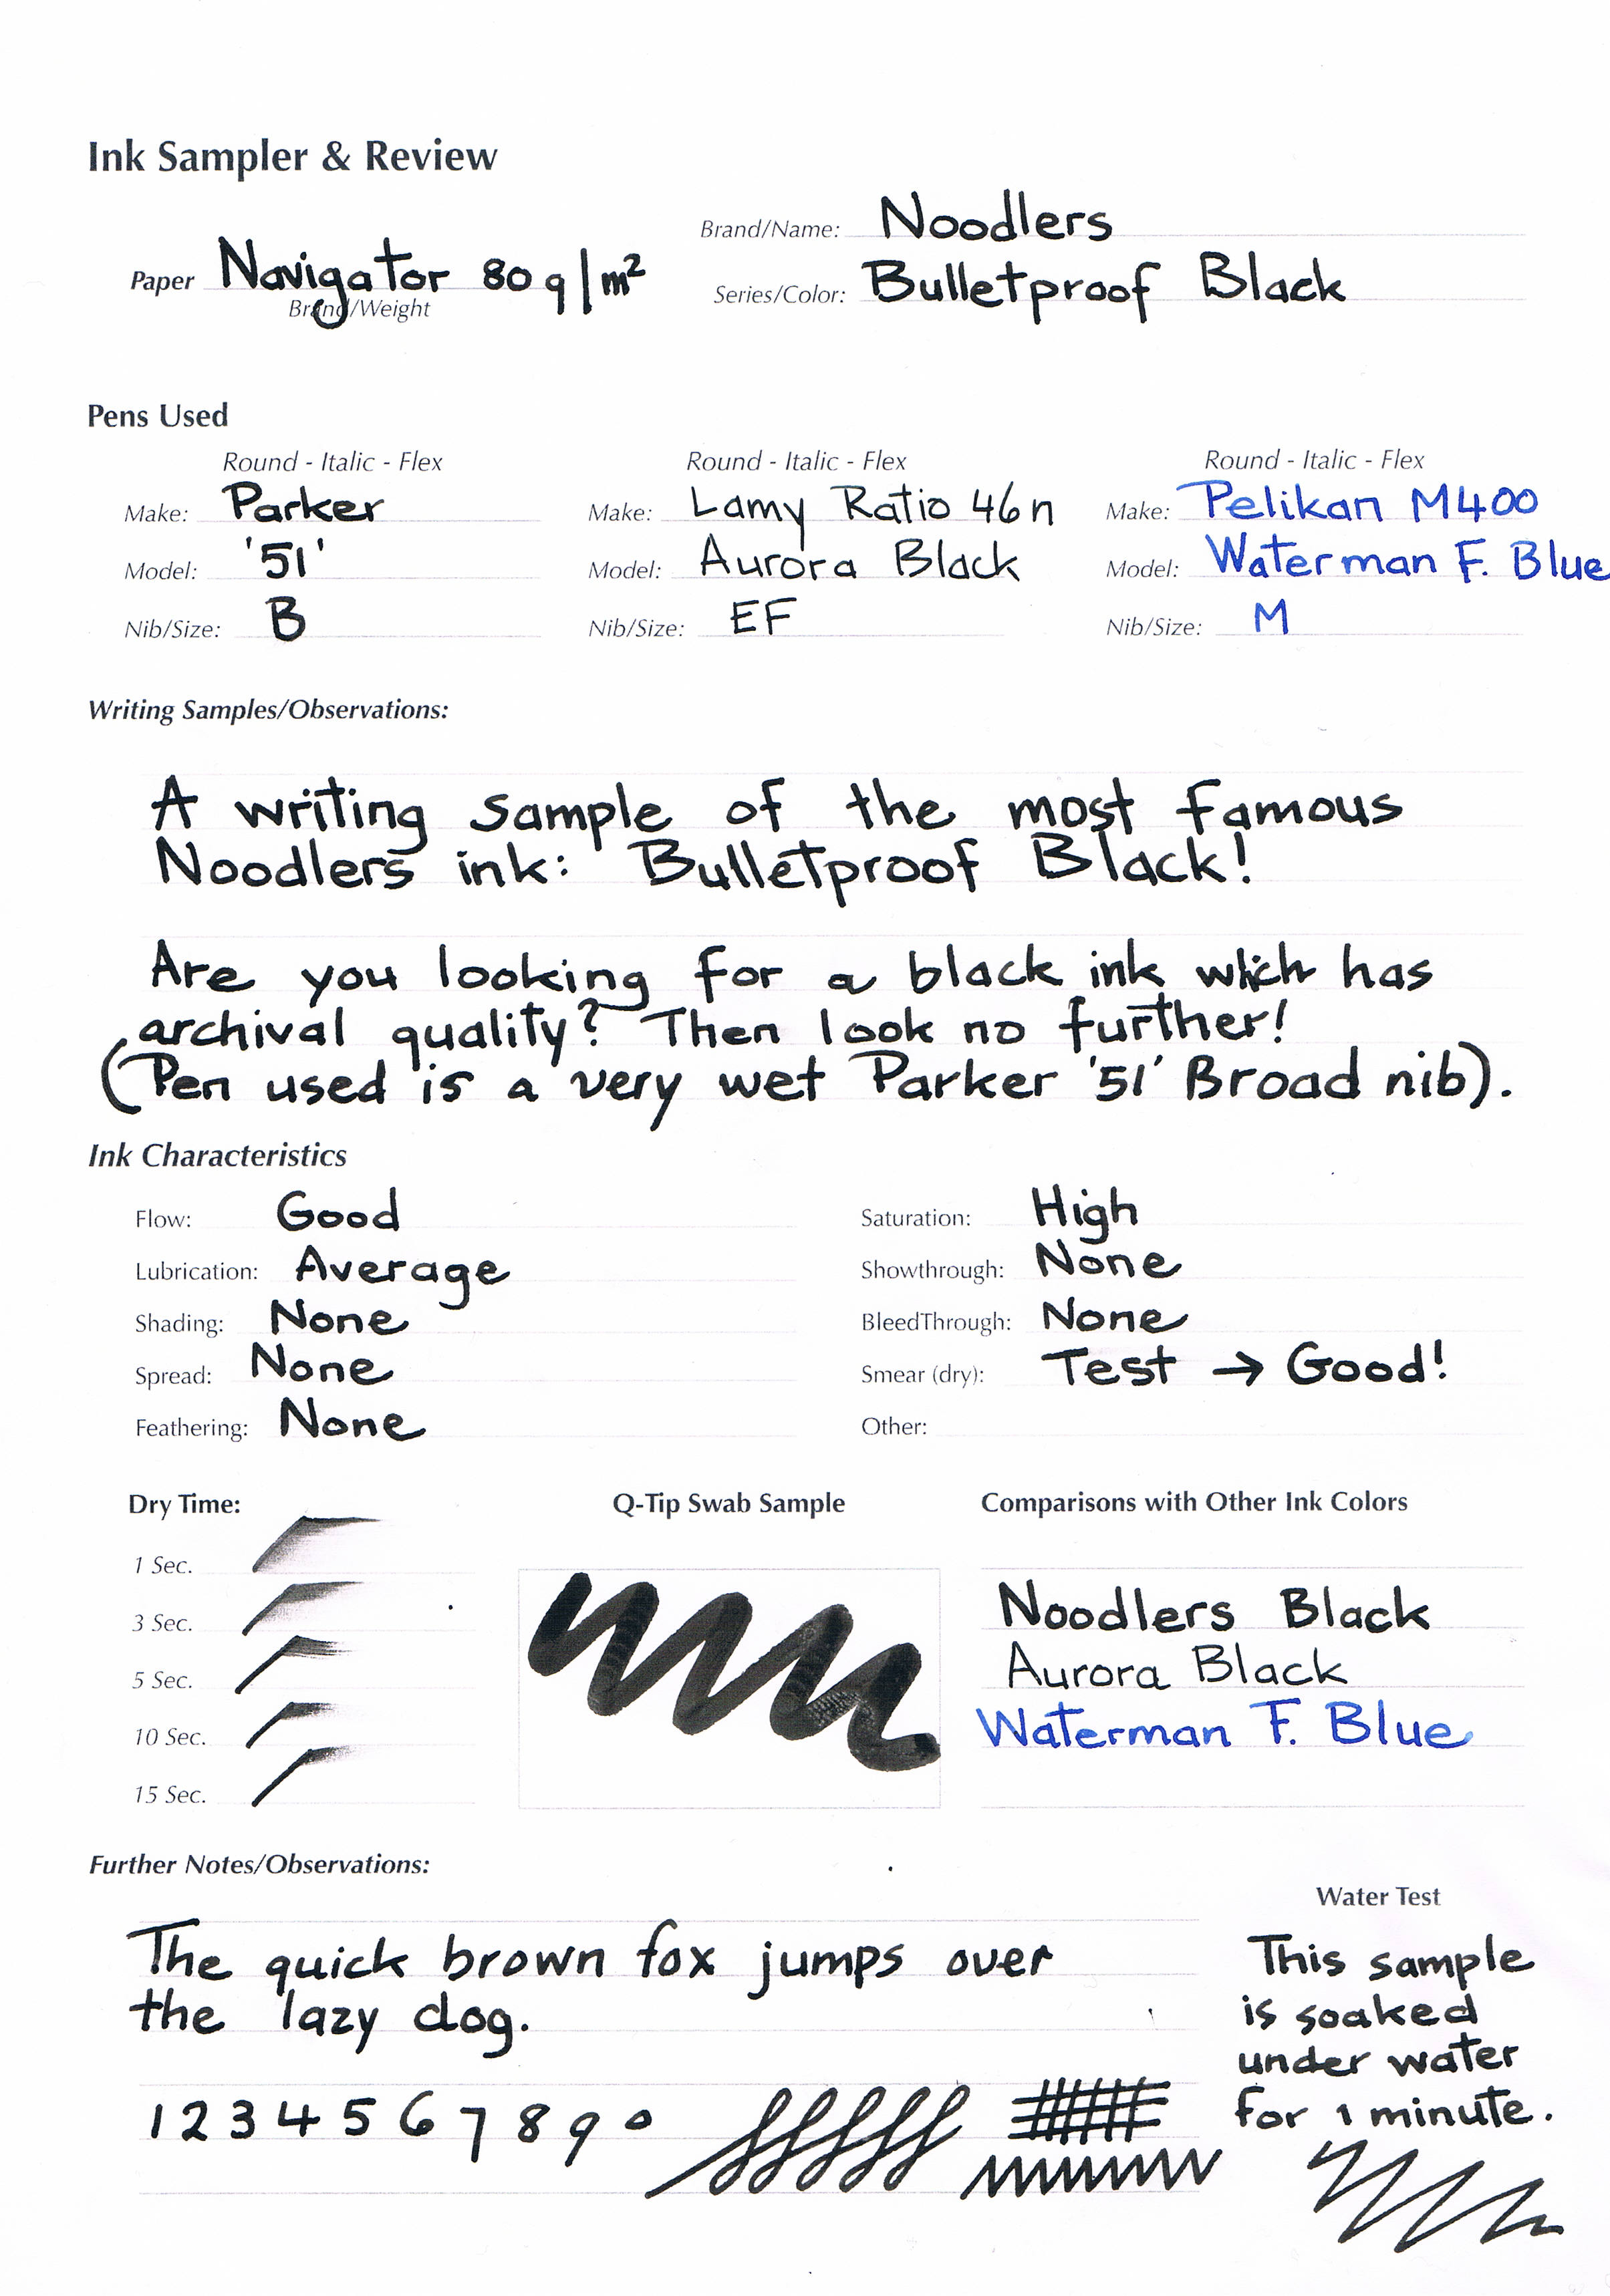 Ink Sampler & Review
Brand/Name: Noodlers
Paper Navigator 80 g/m²
Brand/Weight
Series/Color: Bulletproof Black
Pens Used
Round - Italic - Flex Round - Italic - Flex Round - Italic - Flex
Make: Parker Make: Lamy Ratio 46n Make: Pelikan M400
Model: '51' Model: Aurora Black Model: Waterman F. Blue
Nib/Size: B Nib/Size: EF Nib/Size: M
Writing Samples/Observations:
A writing sample of the most famous
Noodlers ink: Bulletproof Black!
Are you looking for a black ink which has
archival quality? Then look no further!
(Pen used is a very wet Parker '51' Broad nib).
Ink Characteristics
Flow: Good Saturation: High
Lubrication: Average Showthrough: None
Shading: None BleedThrough: None
Spread: None Smear (dry): Test → Good!
Feathering: None Other:
Dry Time: Q-Tip Swab Sample Comparisons with Other Ink Colors
1 Sec.
3 Sec. Noodlers Black
5 Sec. Aurora Black
10 Sec. Waterman F. Blue
15 Sec.
Further Notes/Observations:
Water Test
The quick brown fox jumps over
the lazy dog.
1 2 3 4 5 6 7 8 9 0
This sample
is soaked
under water
for 1 minute.